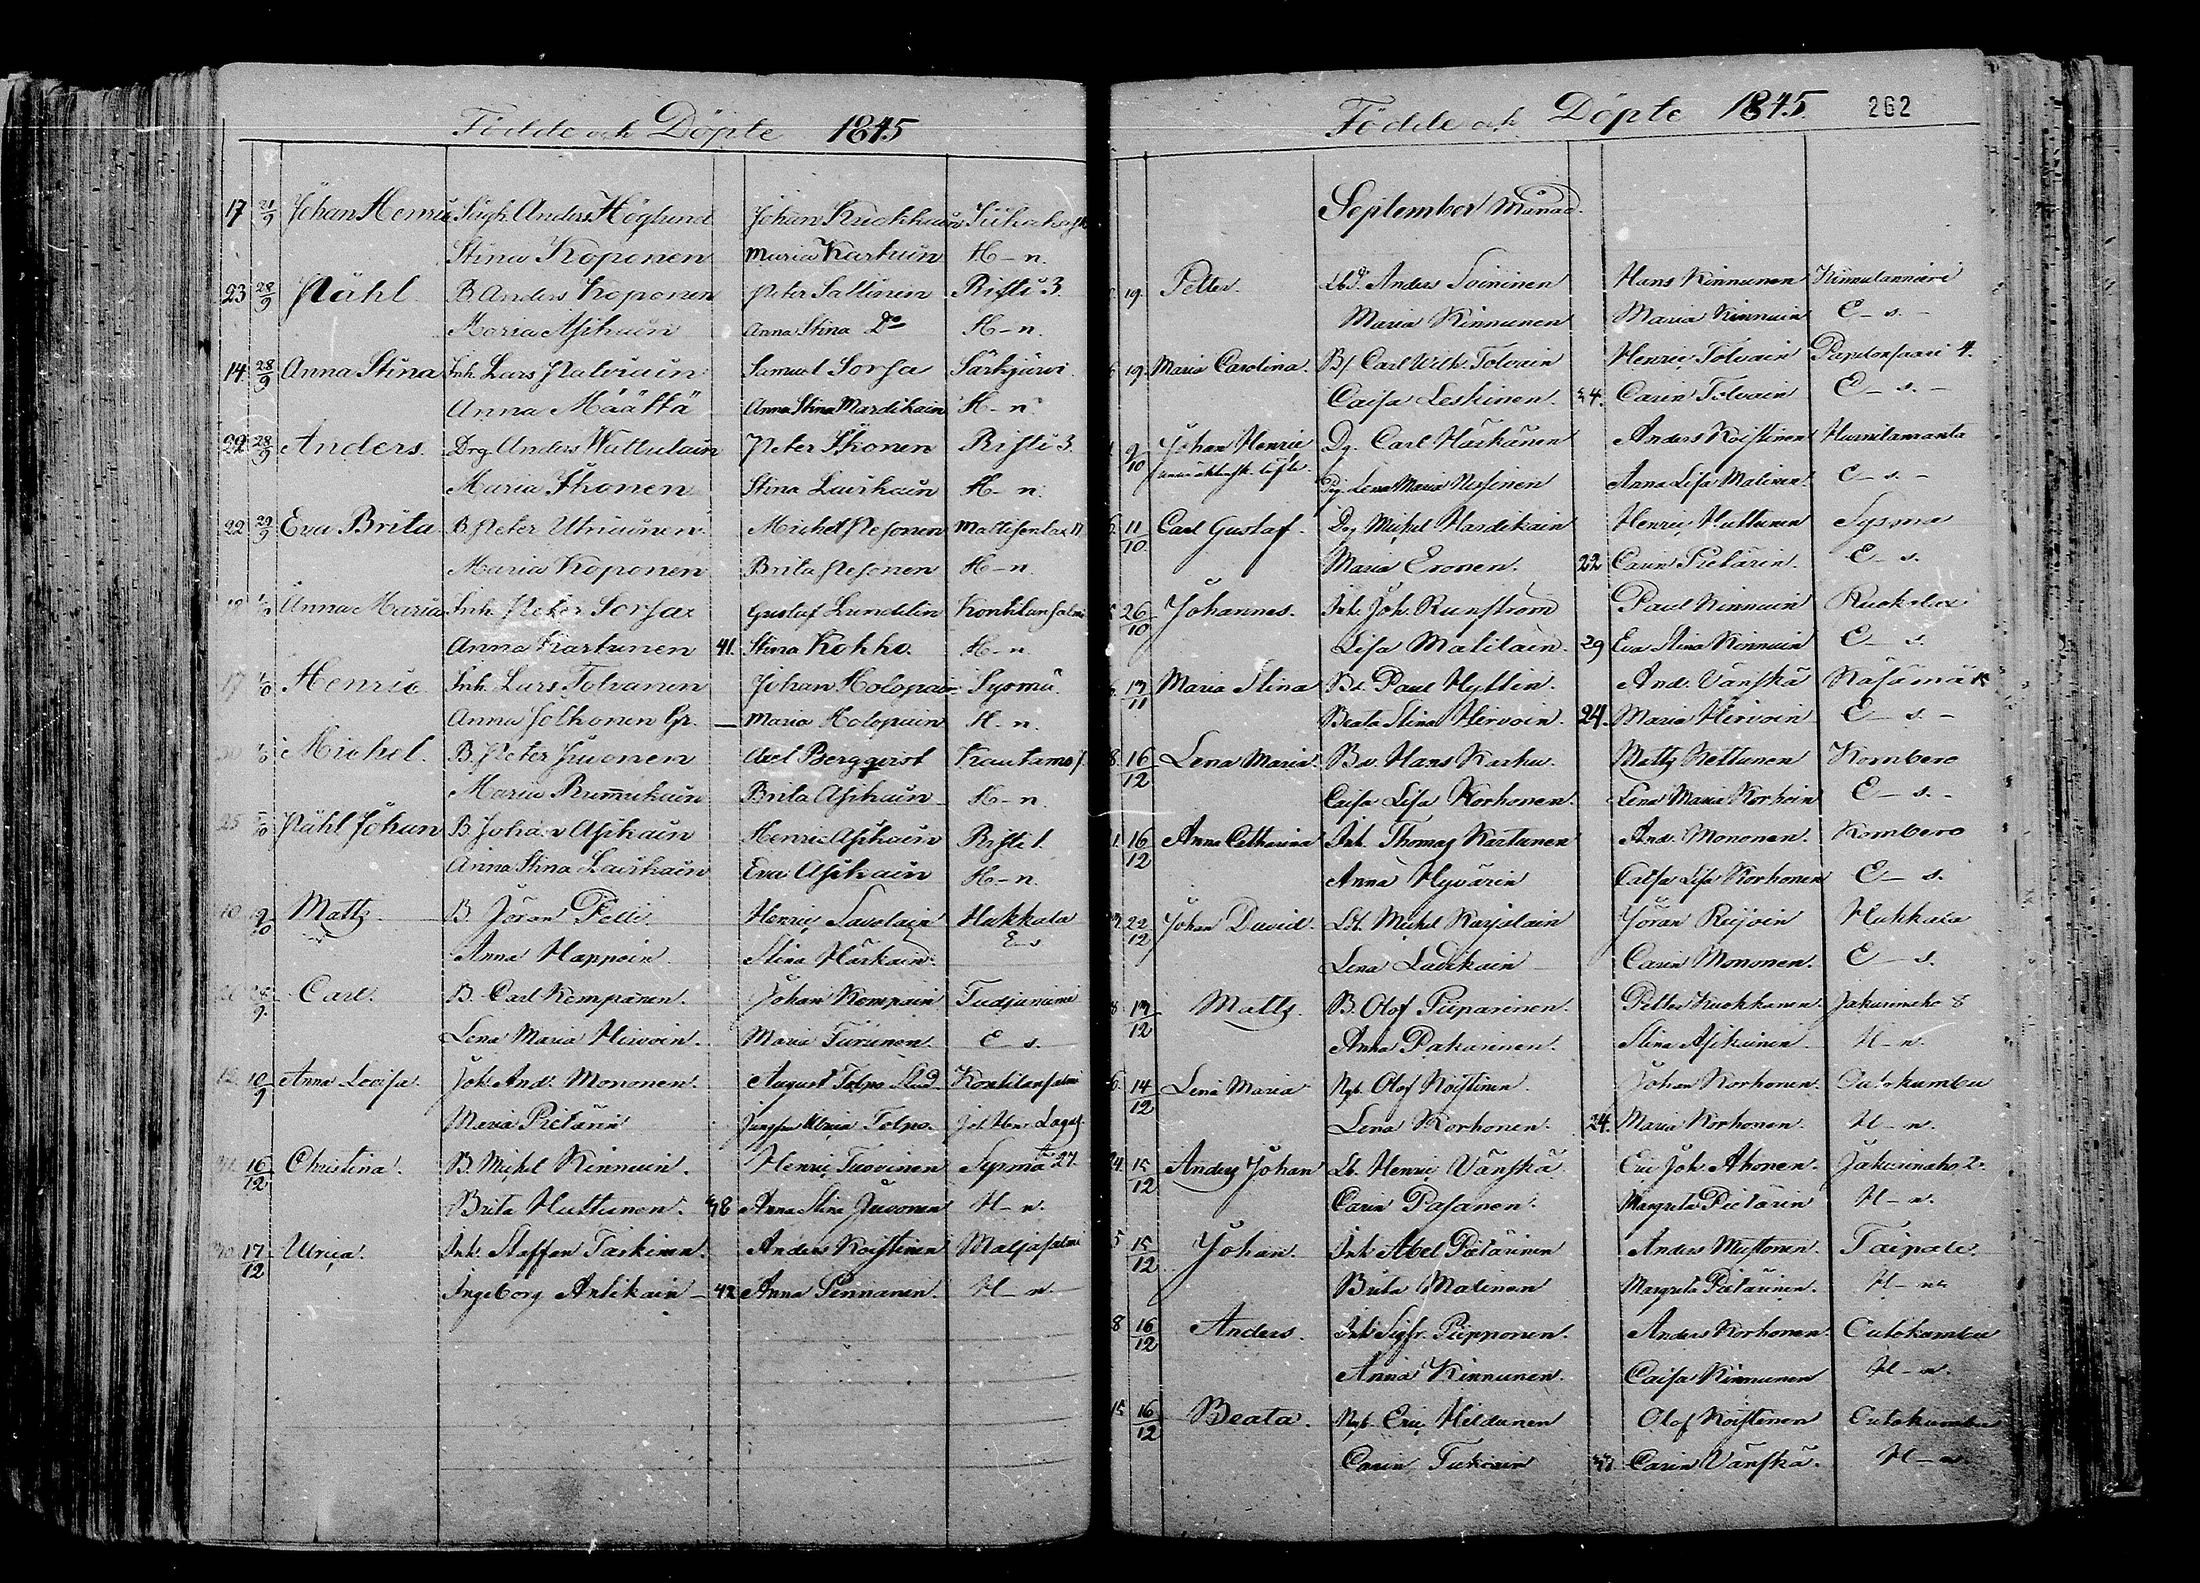 Födde och Döpte 1845
17 21/9 Johan Henric Seigh. Anders Höglund Johan Kuckkain
Stina Koponen Maria Kartuin H-n.
23 28/9 Påhl B. Anders Koponen Peter Sallinen Risti 3.
Maria Asikain Anna Stina Do H-n.
14 28/9 Anna Stina Inh. Lars Samuel Sorsa Särkijärvi
Anna Määttä Anna Stina Mardikain H-n.
22 28/9 Anders Drg. Anders Wattulain Peter Ikonen Risti 3.
Maria Ikonen Stina Laukain H-n.
22 29/9 Eva Brita B. Peter Utriainen Michel Pesonen
Maria Koponen Brita Pesonen H-n.
Anna Maria Inh. Peter Sorsa Gustaf Lundelin Kontilansalmi
Anna Kartunen 41. Stina Kokko. H-n.
17 Henric Inh. Lars Tolvanen Johan Holopain Sysmä.
Anna Jolkonen Gr. — Maria Holopain H-n.
Michel. B. Peter Juvonen Axel Bergqvist
Maria Rummukain Brita Asikain H-n.
25 Påhl Johan B. Johan Asikain Henric Asikain Risti 1.
Anna Stina Laukain Eva Asikain H-n.
10 Matts B. Jöran Pelli Henric Savolain Hukkala
Anna Happoin Stina Härkain E-s
Carl. B. Carl Kempänen. Johan Kempain
Lena Maria Hirvoin. Maria Turunen. E-s.
10/9 Anna Lovisa. Joh. And. Mononen. August Tolpo Stud. Kontilansalmi
Maria Pietärin Jungfru Ulrica Tolpo.
16/12 Christina. B. Michel Kinnuin. Henric Tuovinen Sysmä 27.
Brita Huttunen. 38 Anna Stina Juvonen H-n.
17/12 Ulrica. Inh. Staffan Taskinen. Anders Koistinen Maljasalmi
Ingeborg Antikain — 42 Anna Pennanen. H-n.
Födde och Döpte 1845. 262
September Månad.
19. Petter. Anders Soininen Hans Kinnunen Kinnulanniemi
Maria Kinnunen Maria Kinnuin E-s.-
19. Maria Carolina. B. Carl Wilh. Tolvain Henric Tolvain 4.
Caisa Leskinen. 34. Carin Tolvain E-s.-
9/10 Johan Henric Dg. Carl Härkänen Anders Koistinen
Pig. Lena Maria Nissinen Anna Lisa Malinen E-s.-
11/10 Carl Gustaf. Dg. Michel Hardikain Henric Huttunen Sysmä
Maria Eronen. 22 Carin Pietärin. E-s.
26/10 Johannes. Inh. Joh. Runström Paul Kinnuin
Lisa Matilain. 29 Eva Stina Kinnuin E-s.
Maria Stina Bd. Paul Hyttin. And. Vänskä Käsämäk
Beata Stina Hirvoin. 24. Maria Hirvoin E-s.-
8. 16/12 Lena Maria Bd. Hans Karhu. Matts Kettunen Kombero
Caisa Lisa Korhonen. Lena Maria Korhoin E-s.-
1. 16/12 Anna Catharina Inh. Thomas Kartunen And. Mononen. Kombero
Anna Hyvärin Caisa Lisa Korhonen E-s.
22/12 Johan David. Lb. Michel Karjalain Jöran Reijoin Hukkala
Lena Laukain Carin Mononen. E-s.
8 Matts. B. Olof Piiparinen. Petter Kuokkanen. Jakunaho 8
Anna Pakarinen. Stina Asikainen. H-n.
6. 14/12 Lena Maria Nyb. Olof Koistinen. Johan Korhonen. Outokumbu
Lena Korhonen. 24. Maria Korhonen. H-n.
24. 15/12 Anders Johan Lb. Henric Vänskä. Eric Joh. Ahonen. Jakunaho 2.
Carin Pasanen. Margreta Pietärin H-n.
5 15/12 Johan. Inh. Abel Pietärinen Anders Mustonen. Taipale.
Brita Malinen Margreta Pietärinen. H-n.
8 16/12 Anders. Inh. Sigfr. Piipponen. Anders Korhonen. Outokumbu
Anna Kinnunen. Caisa Kinnunen H-n.
15 16/12 Beata. Nyb. Eric Hildunen Olof Koistinen Outokumbu
Carin Tukiain Carin Vänskä. H-n.